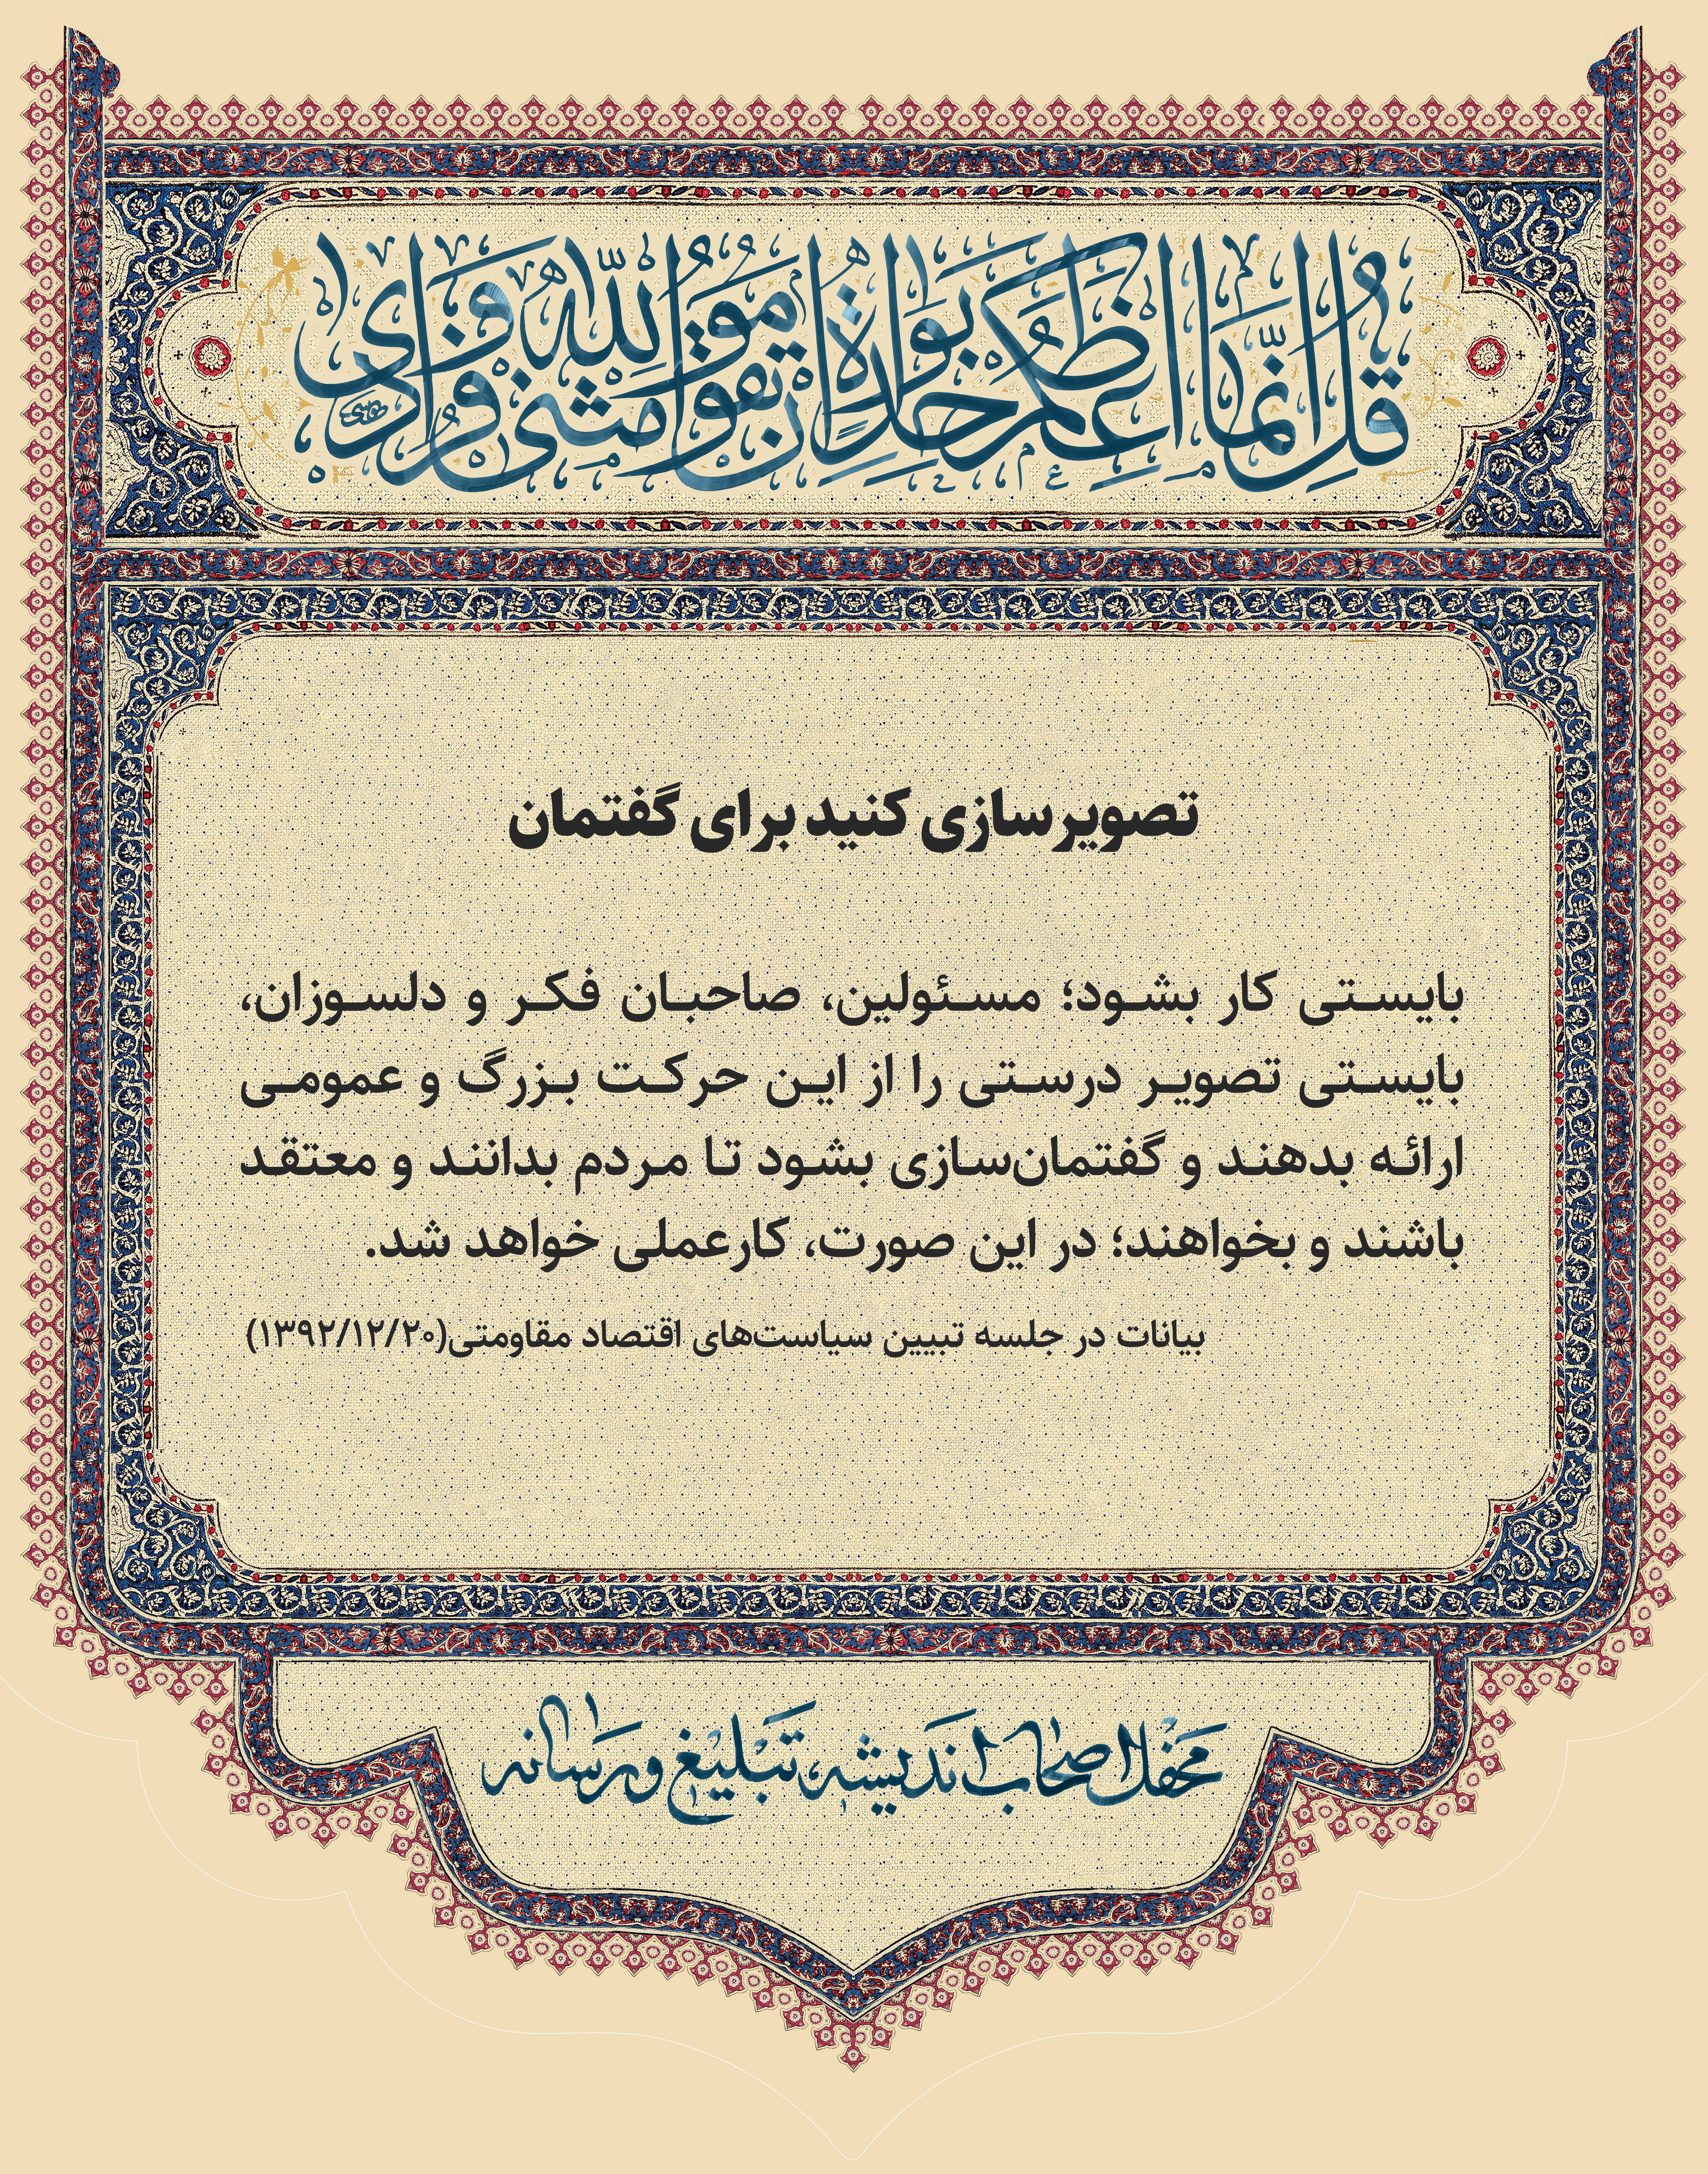 قُل اِنَّما اَعِظُکُم بِواحِدَةٍ اَن تَقوموا لِلّهِ مَثنی وَ فُرادی
تصویرسازی کنید برای گفتمان
بایستی کار بشود؛ مسئولین، صاحبان فکر و دلسوزان،
بایستی تصویر درستی را از این حرکت بزرگ و عمومی
ارائه بدهند و گفتمان‌سازی بشود تا مردم بدانند و معتقد
باشند و بخواهند؛ در این صورت، کار عملی خواهد شد.
بیانات در جلسه تبیین سیاست‌های اقتصاد مقاومتی(۱۳۹۲/۱۲/۲۰)
محفل اصحاب اندیشه، تبلیغ و رسانه